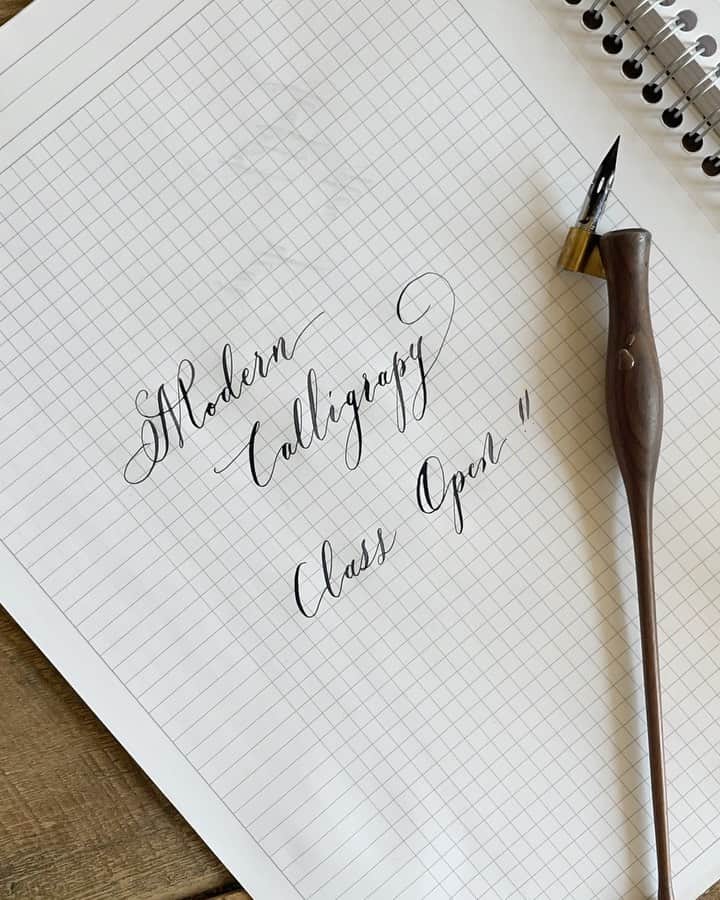 Modern
Calligrapy
Class Open !!